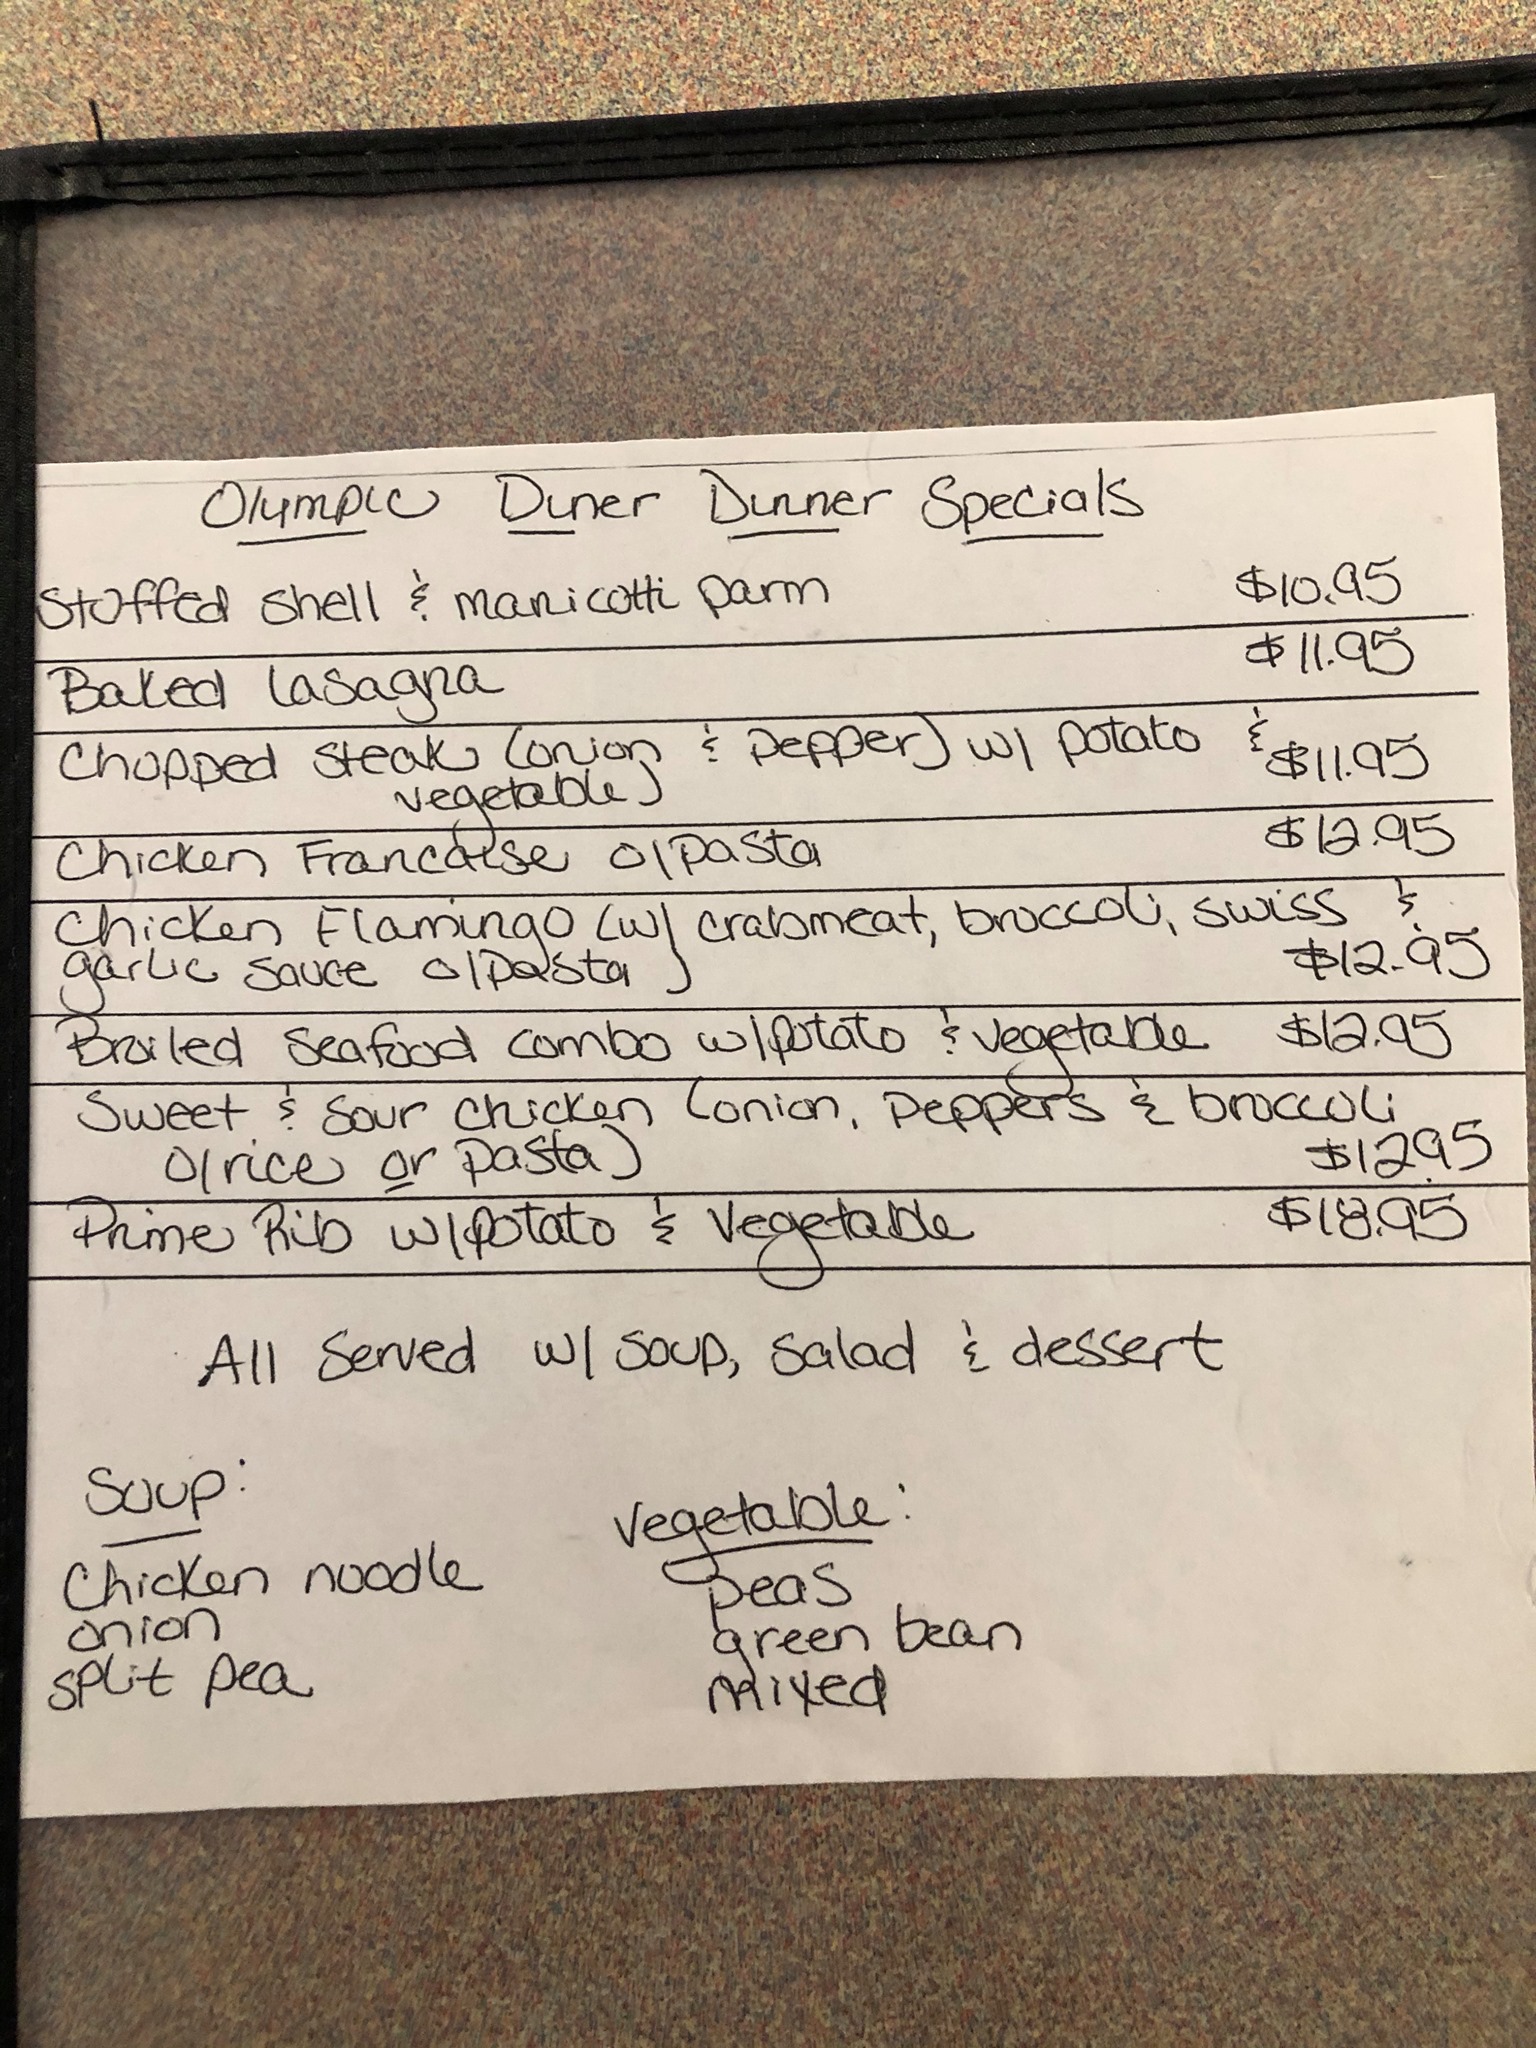 Olympic Diner Dinner Specials
Stuffed shell & manicotti parm $10.95
Baked lasagna $11.95
Chopped steak (onion & pepper) w/ potato &
vegetable) $11.95
Chicken Francaise o/pasta $12.95
Chicken Flamingo (w/ crabmeat, broccoli, swiss &
garlic sauce o/pasta) $12.95
Broiled seafood combo w/potato & vegetable $12.95
Sweet & Sour chicken (onion, peppers & broccoli
o/rice or pasta) $12.95
Prime Rib w/potato & vegetable $18.95
All served w/ soup, salad & dessert
Soup:
Chicken noodle
onion
split pea
vegetable:
peas
green bean
mixed